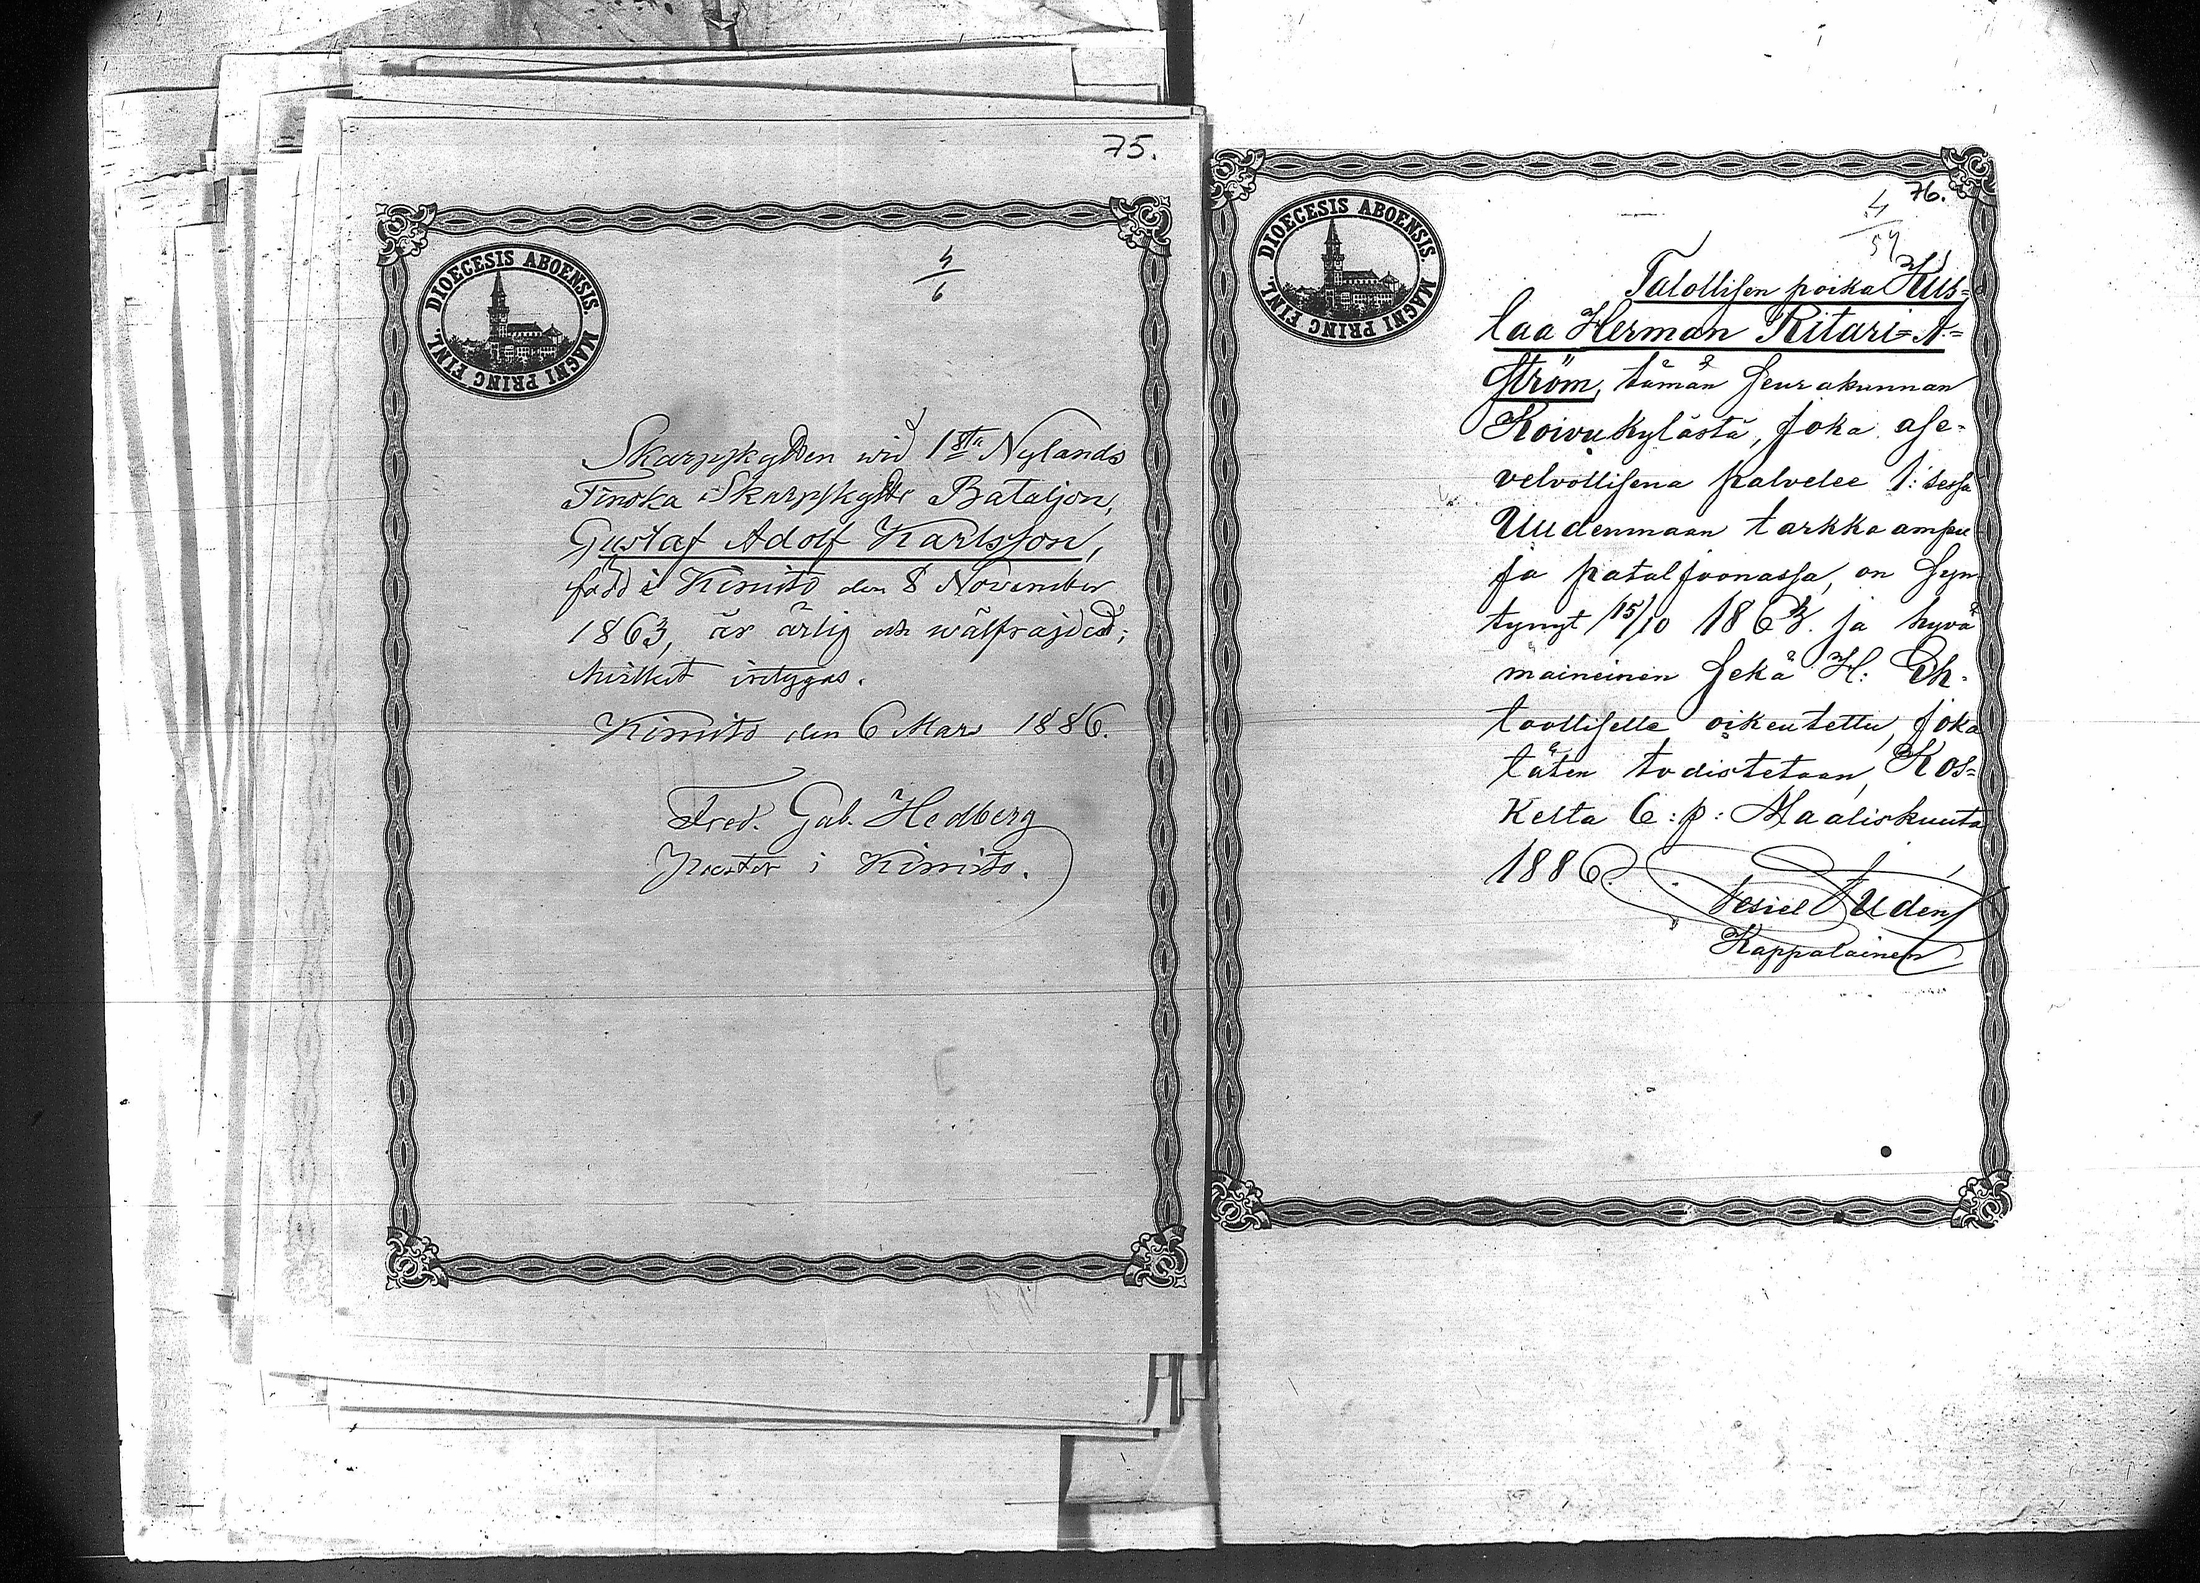 75.
DIOECESIS ABOENSIS. MAGNI PRINC FINL.
4/6
Skarpskytten wid 1sta Nylands
Finska Skarpskytte Bataljon,
Gustaf Adolf Karlsson,
född i Kimito den 8 November
1863, är ärlig och wälfrejdad;
hvilket intygas.
Kimito den 6 Mars 1886.
Fred. Gab. Hedberg
Prostor i Kimito.
76.
DIOECESIS ABOENSIS. MAGNI PRINC FINL.
4/54
Talollisen poika Kus=
taa Herman Ritari=A=
ström, tämän seurakunnan
Koivukylästä, joka ase-
velvollisena palvelee 1:sessa
Uudenmaan tarkka ampu
ja pataljoonassa, on syn
tynyt 15/10 1863. ja hyvä
maineinen sekä H: Eh-
toolliselle oikeutettu, joka
täten todistetaan, Kos=
kelta 6:p: Maaliskuuta
1886.
Kappalainen